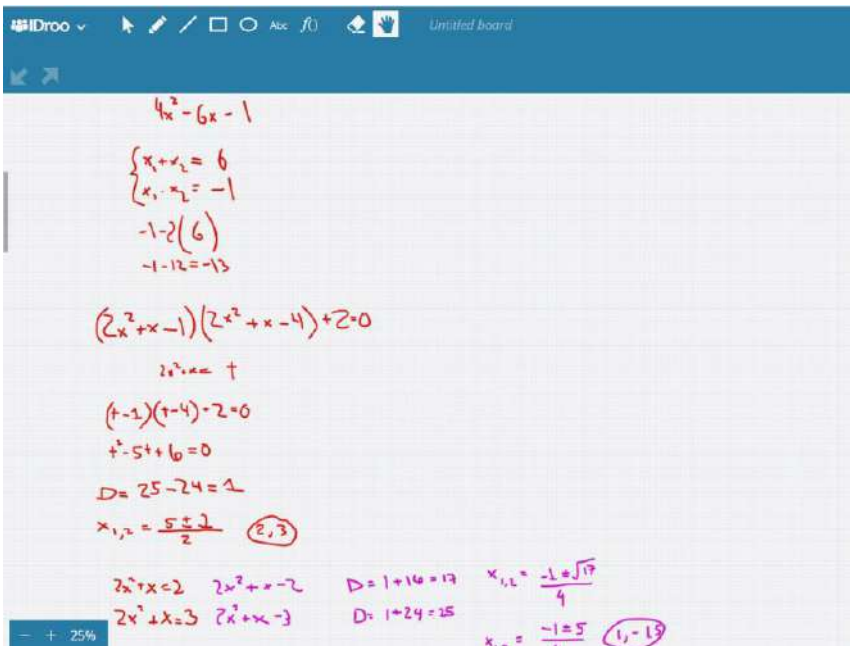 IDroo Abc f() Untitled board
4x² - 6x - 1
x₁ + x₂ = 6
x₁ · x₂ = -1
-1-2(6)
-1-12=-13
(2x²+x-1)(2x²+x-4)+2=0
2x²+x= t
(t-1)(t-4)-2=0
t²-5t+6=0
D= 25-24=1
x₁,₂ = (5±1)/2 (2,3)
2x²+x=2 2x²+x-2 D=1+16=17 x₁,₂= (-1±√17)/4
2x²+x=3 2x²+x-3 D: 1+24=25
- + 25% x₁,₂ = -1±5 (1,-1.5)